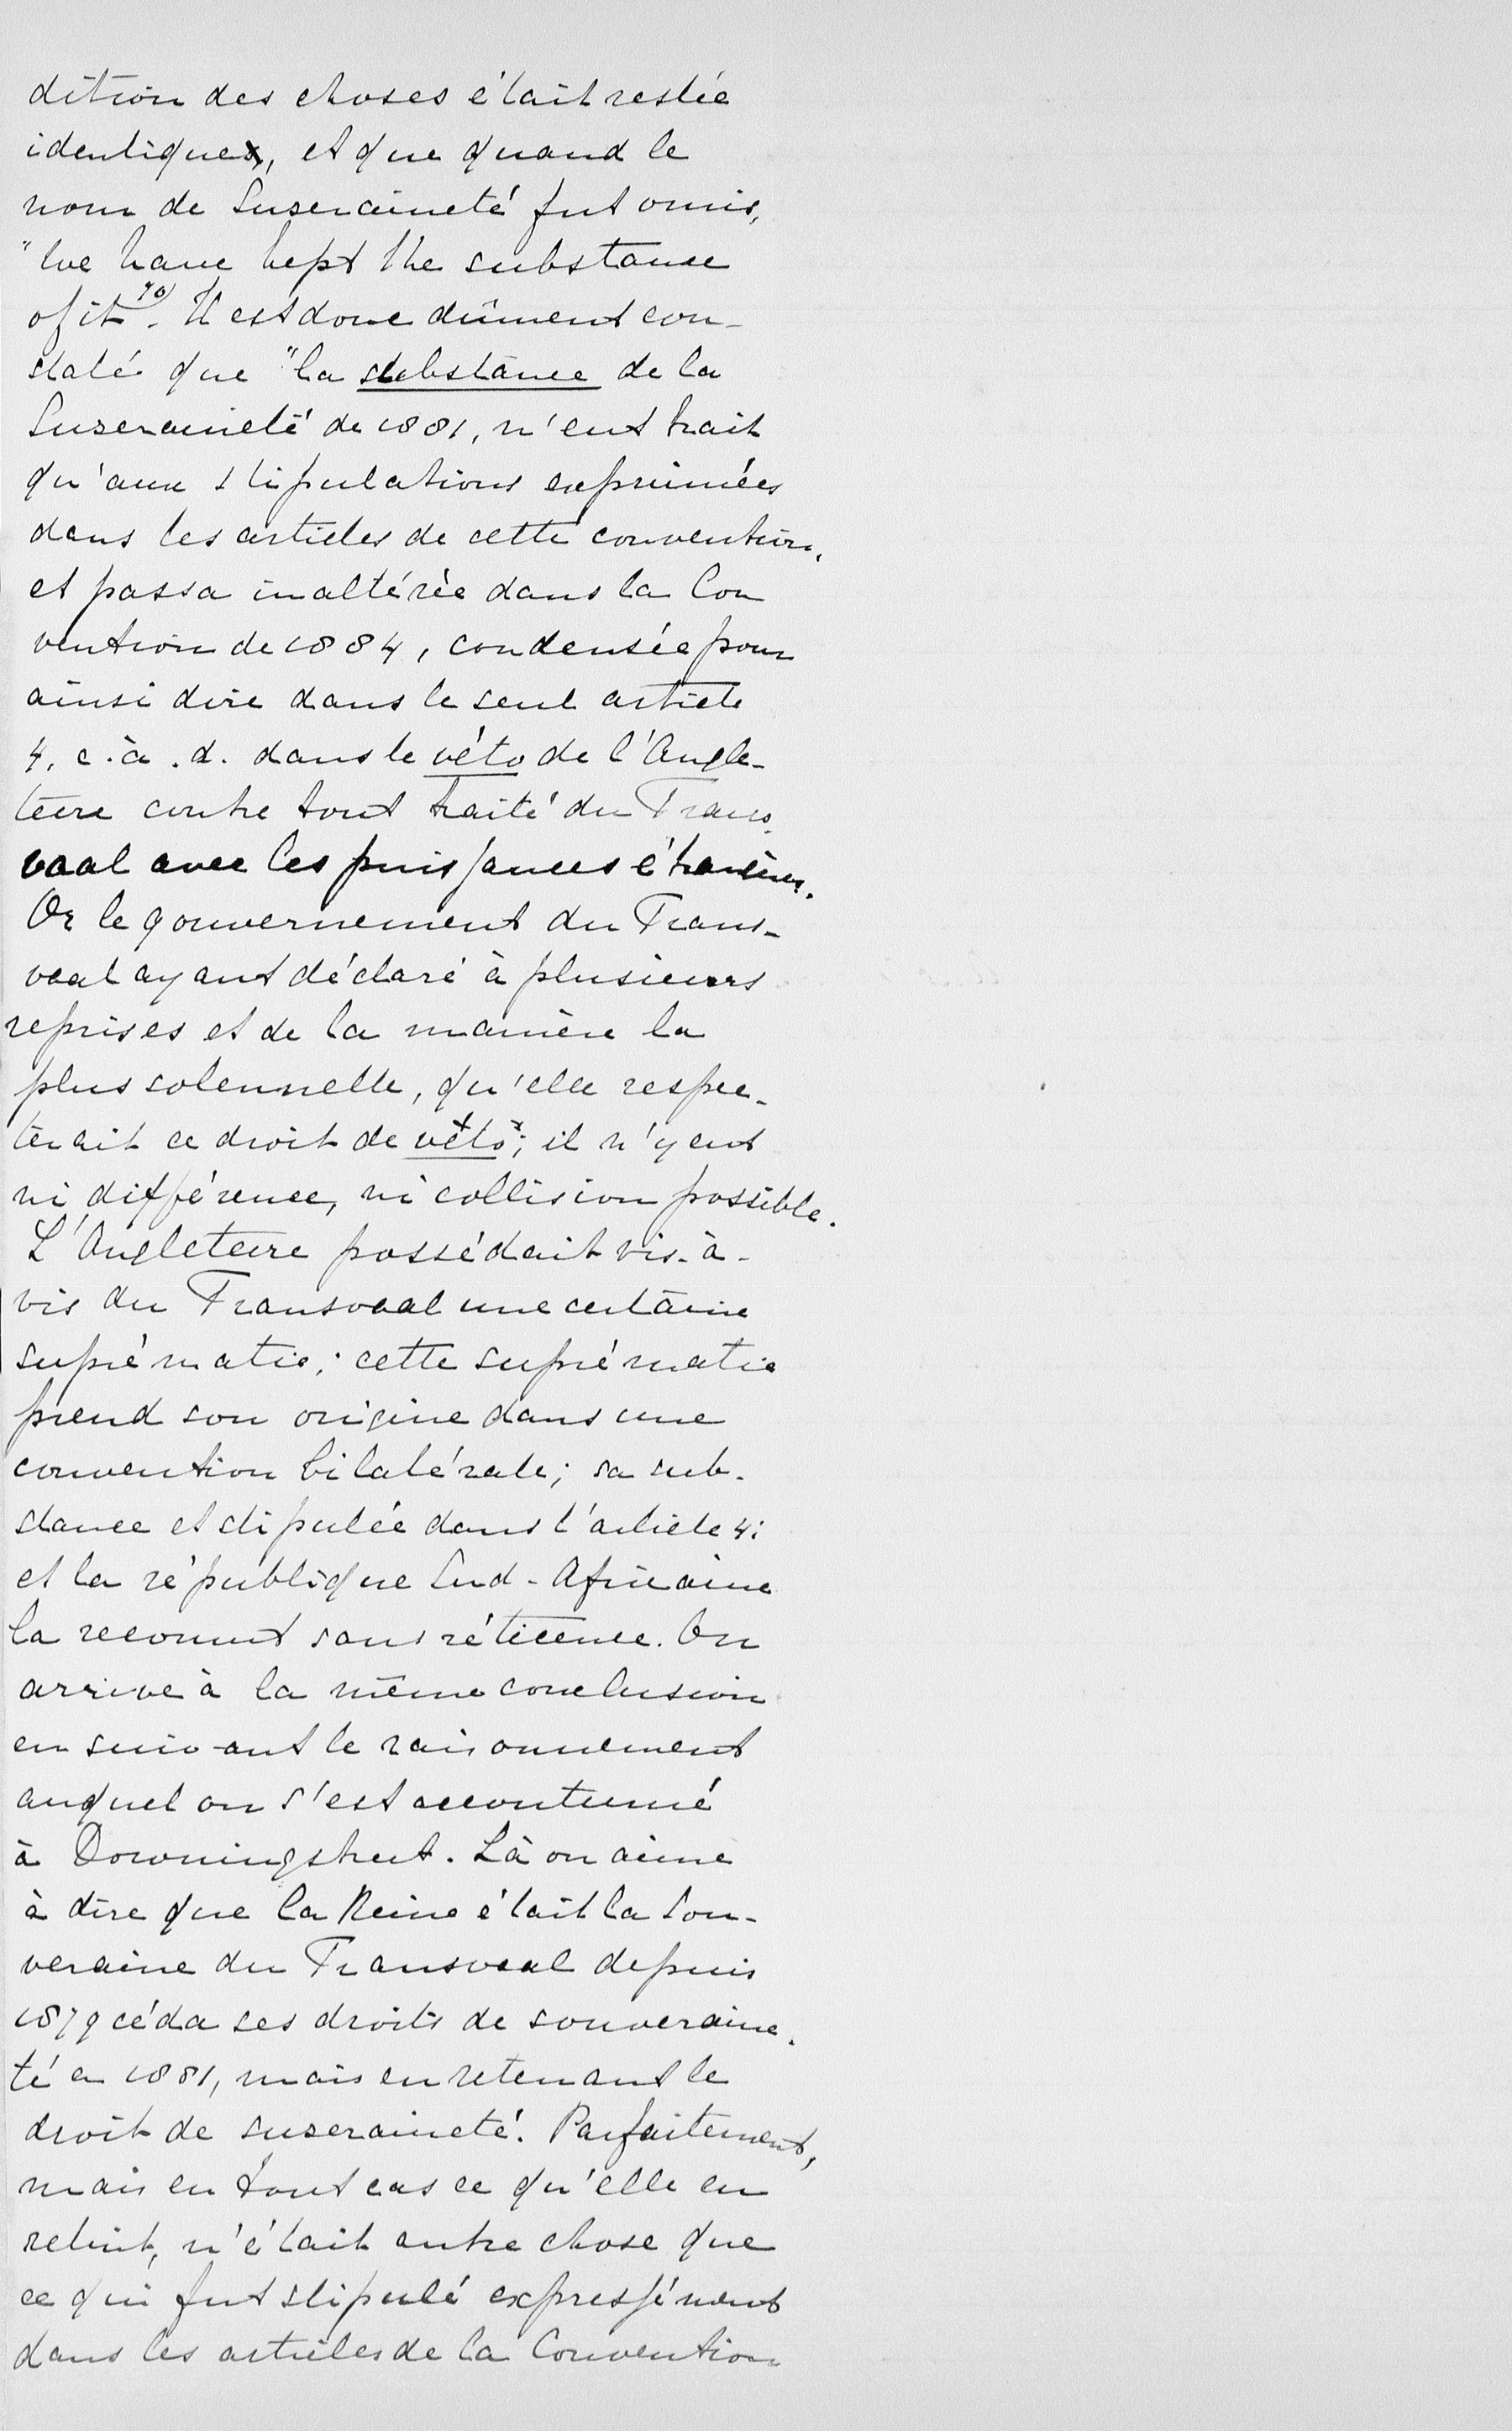 dition des choses était restée
identique, et que quand le
nom de Suzeraineté fut omis,
"we have kept the substance
of it" 70). Il est donc dûment con-
staté que "la substance de la
Suzeraineté de 1881, n'eut trait
qu'aux stipulations exprimées
dans les articles de cette convention,
et passa inaltérée dans la Con
vention de 1884, condensée pour
ainsi dire dans le seul article
4, c.à.d. dans le véto de l'Angle-
terre contre tout traité du Trans-
vaal avec les puissances étrangères.
Or le gouvernement du Trans-
vaal ayant déclaré à plusieurs
reprises et de la manière la
plus solennelle, qu'elle respec-
terait ce droit de véto; il n'y eut
ni différence, ni collision possible.
L'Angleterre possédait vis-à-
vis du Transvaal une certaine
suprématie; cette suprématie
prend son origine dans une
convention bilatérale; sa sub-
stance est stipulée dans l'article 4;
et la république Sud-Africaine
la reconnut sans réticence. On
arrive à la même conclusion
en suivant le raisonnement
auquel on s'est accoutumé
à Downingstreet. Là on aime
à dire que la Reine était la Sou-
veraine du Transvaal depuis
1879 céda ses droits de souveraine-
té en 1881, mais en retenant le
droit de suzeraineté. Parfaitement,
mais en tout cas ce qu'elle en
retint, n'était autre chose que
ce qui fut stipulé expressément
dans les articles de la Convention